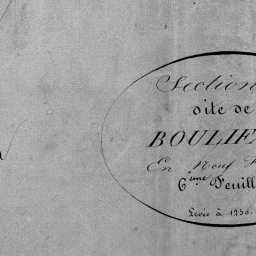 Section
dite de
BOULIE
En Neuf
6ème Feuill
Levée à 1250.